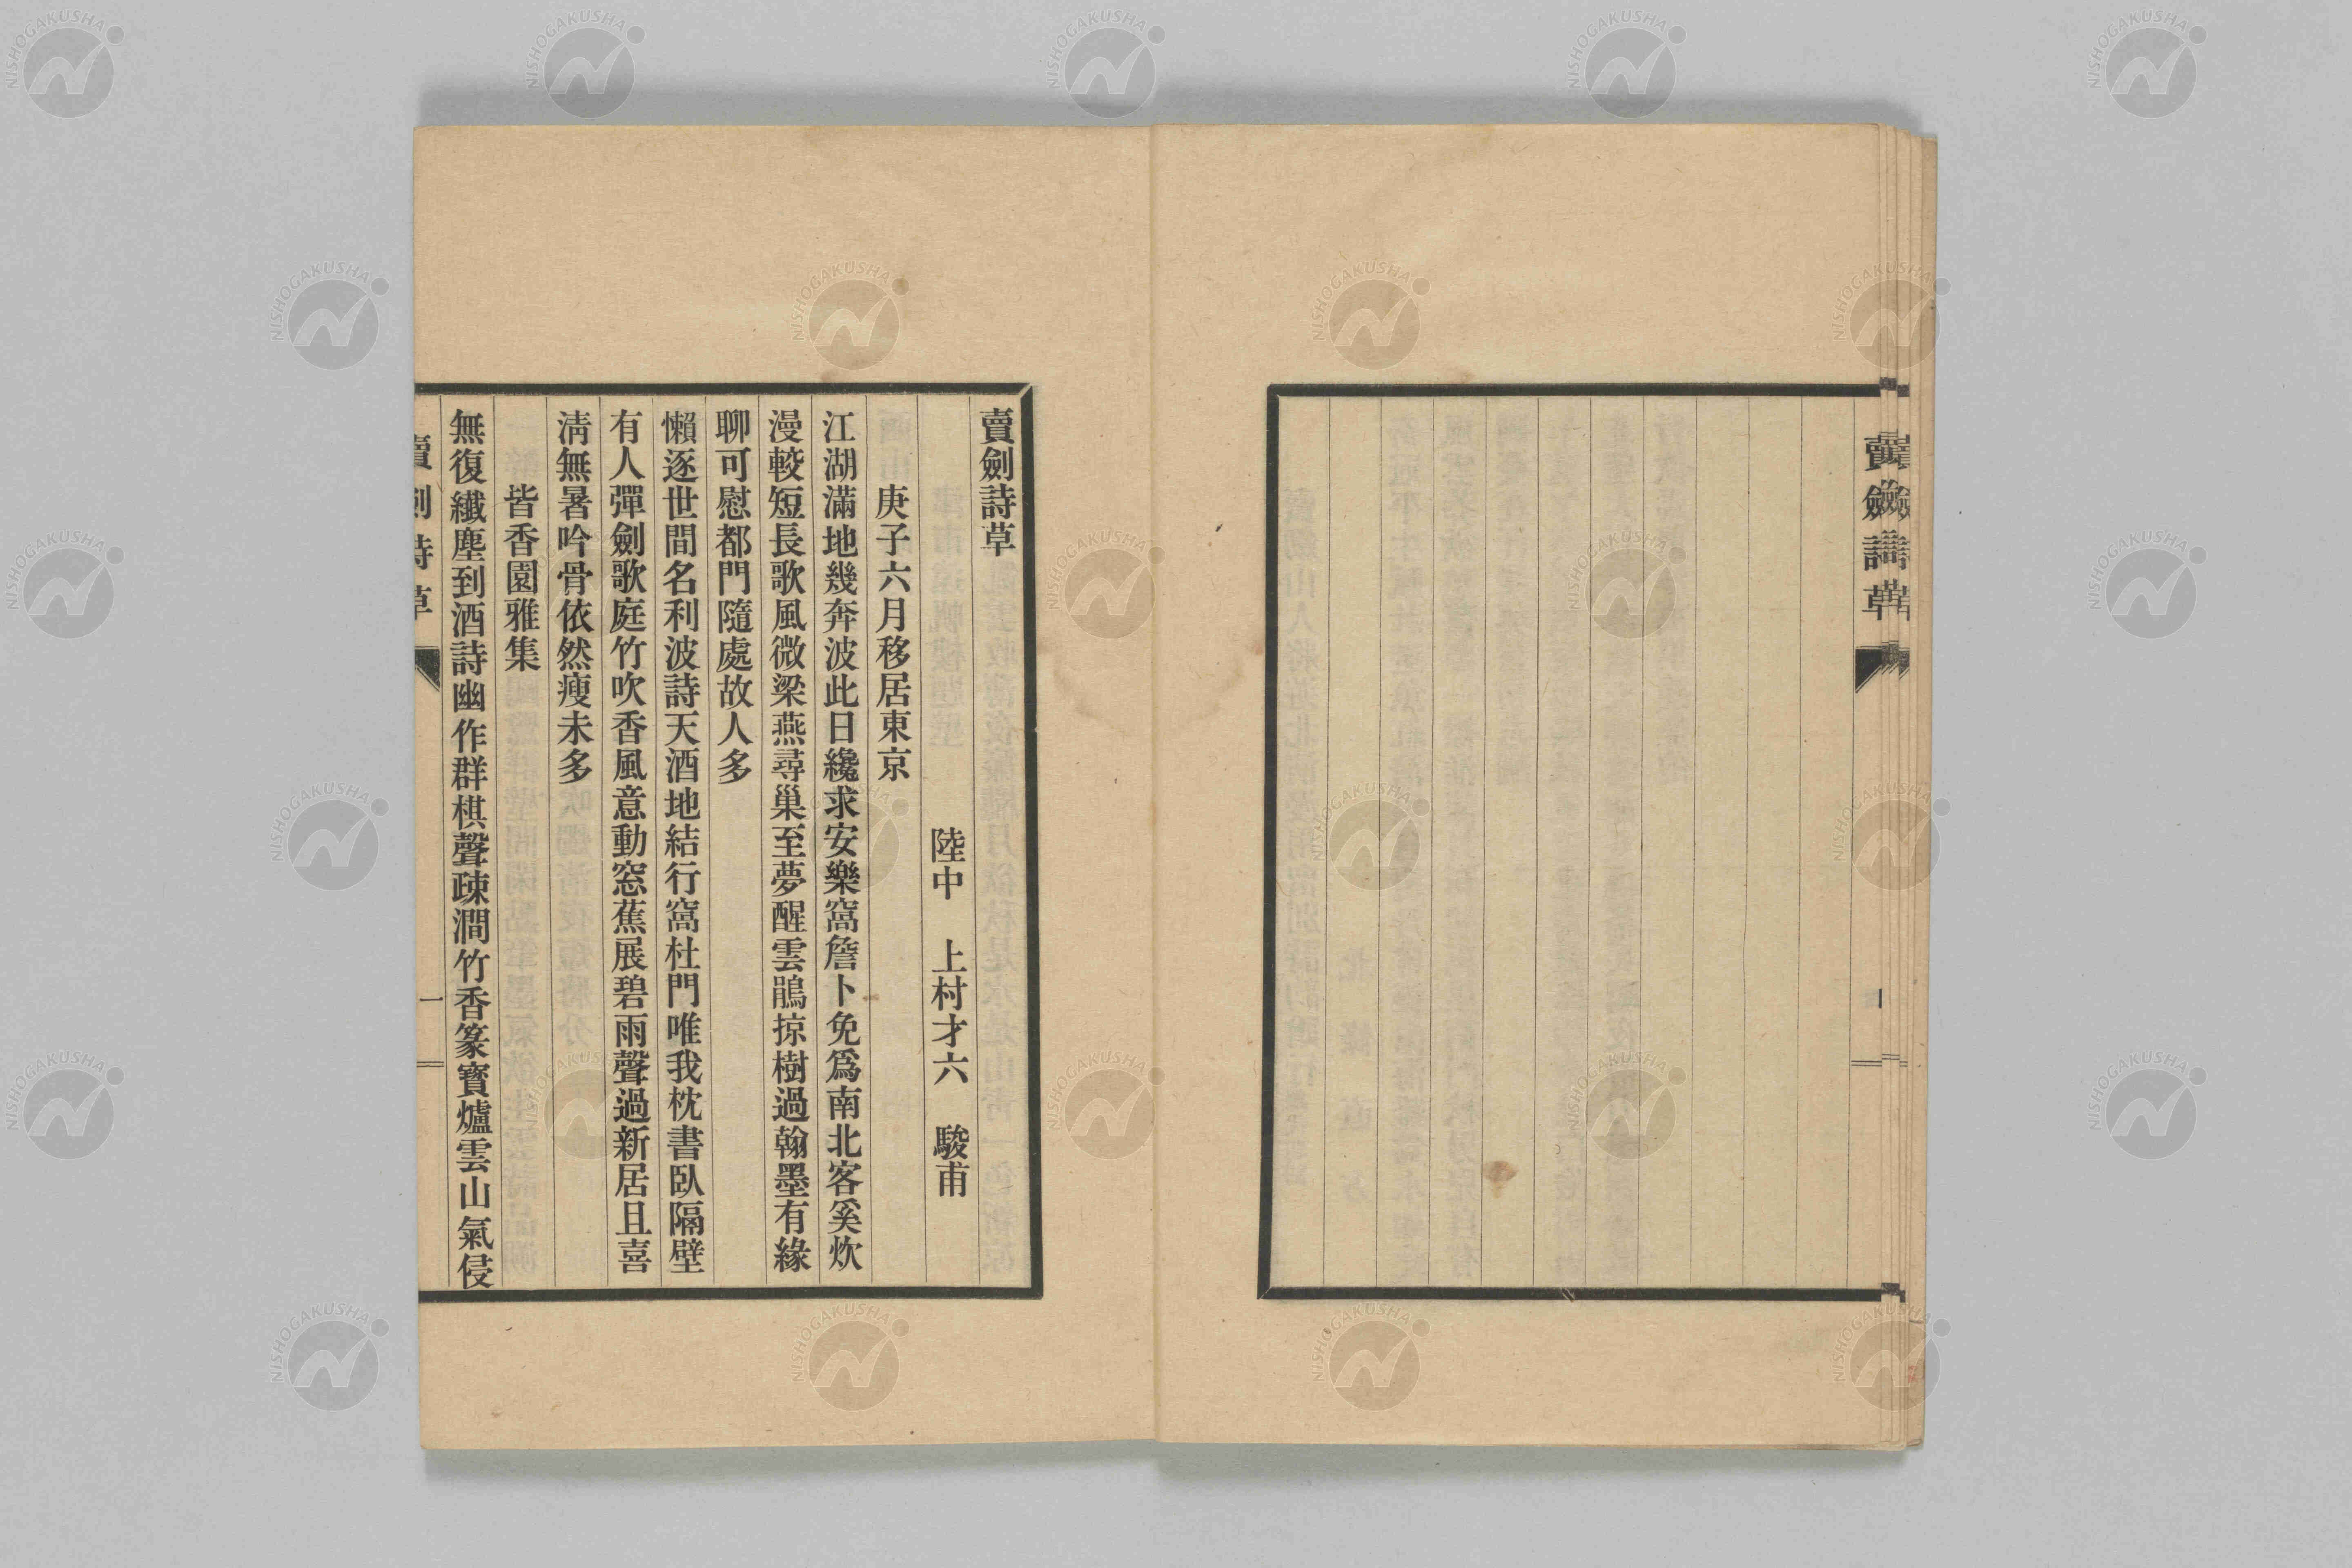 賣劍詩草
賣劍詩草
陸中　上村才六　駿甫
庚子六月移居東京
江湖滿地幾奔波此日纔求安樂窩詹卜免爲南北客奚炊
漫較短長歌風微梁燕尋巢至夢醒雲鵑掠樹過翰墨有緣
聊可慰都門隨處故人多
懶逐世間名利波詩天酒地結行窩杜門唯我枕書臥隔壁
有人彈劍歌庭竹吹香風意動窓蕉展碧雨聲過新居且喜
淸無暑吟骨依然瘦未多
皆香園雅集
無復纖塵到酒詩幽作群棋聲疎澗竹香篆寶爐雲山氣侵
賣劍詩草
一
NISHOGAKUSHA